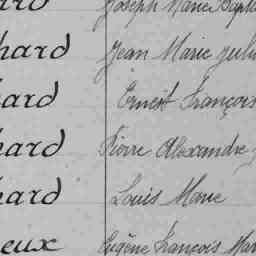 Joseph Marie Bapti
hard Jean Marie Juli
ard Ernest François
hard Pierre Alexandre
hard Louis Marie
eux Eugène François Mar